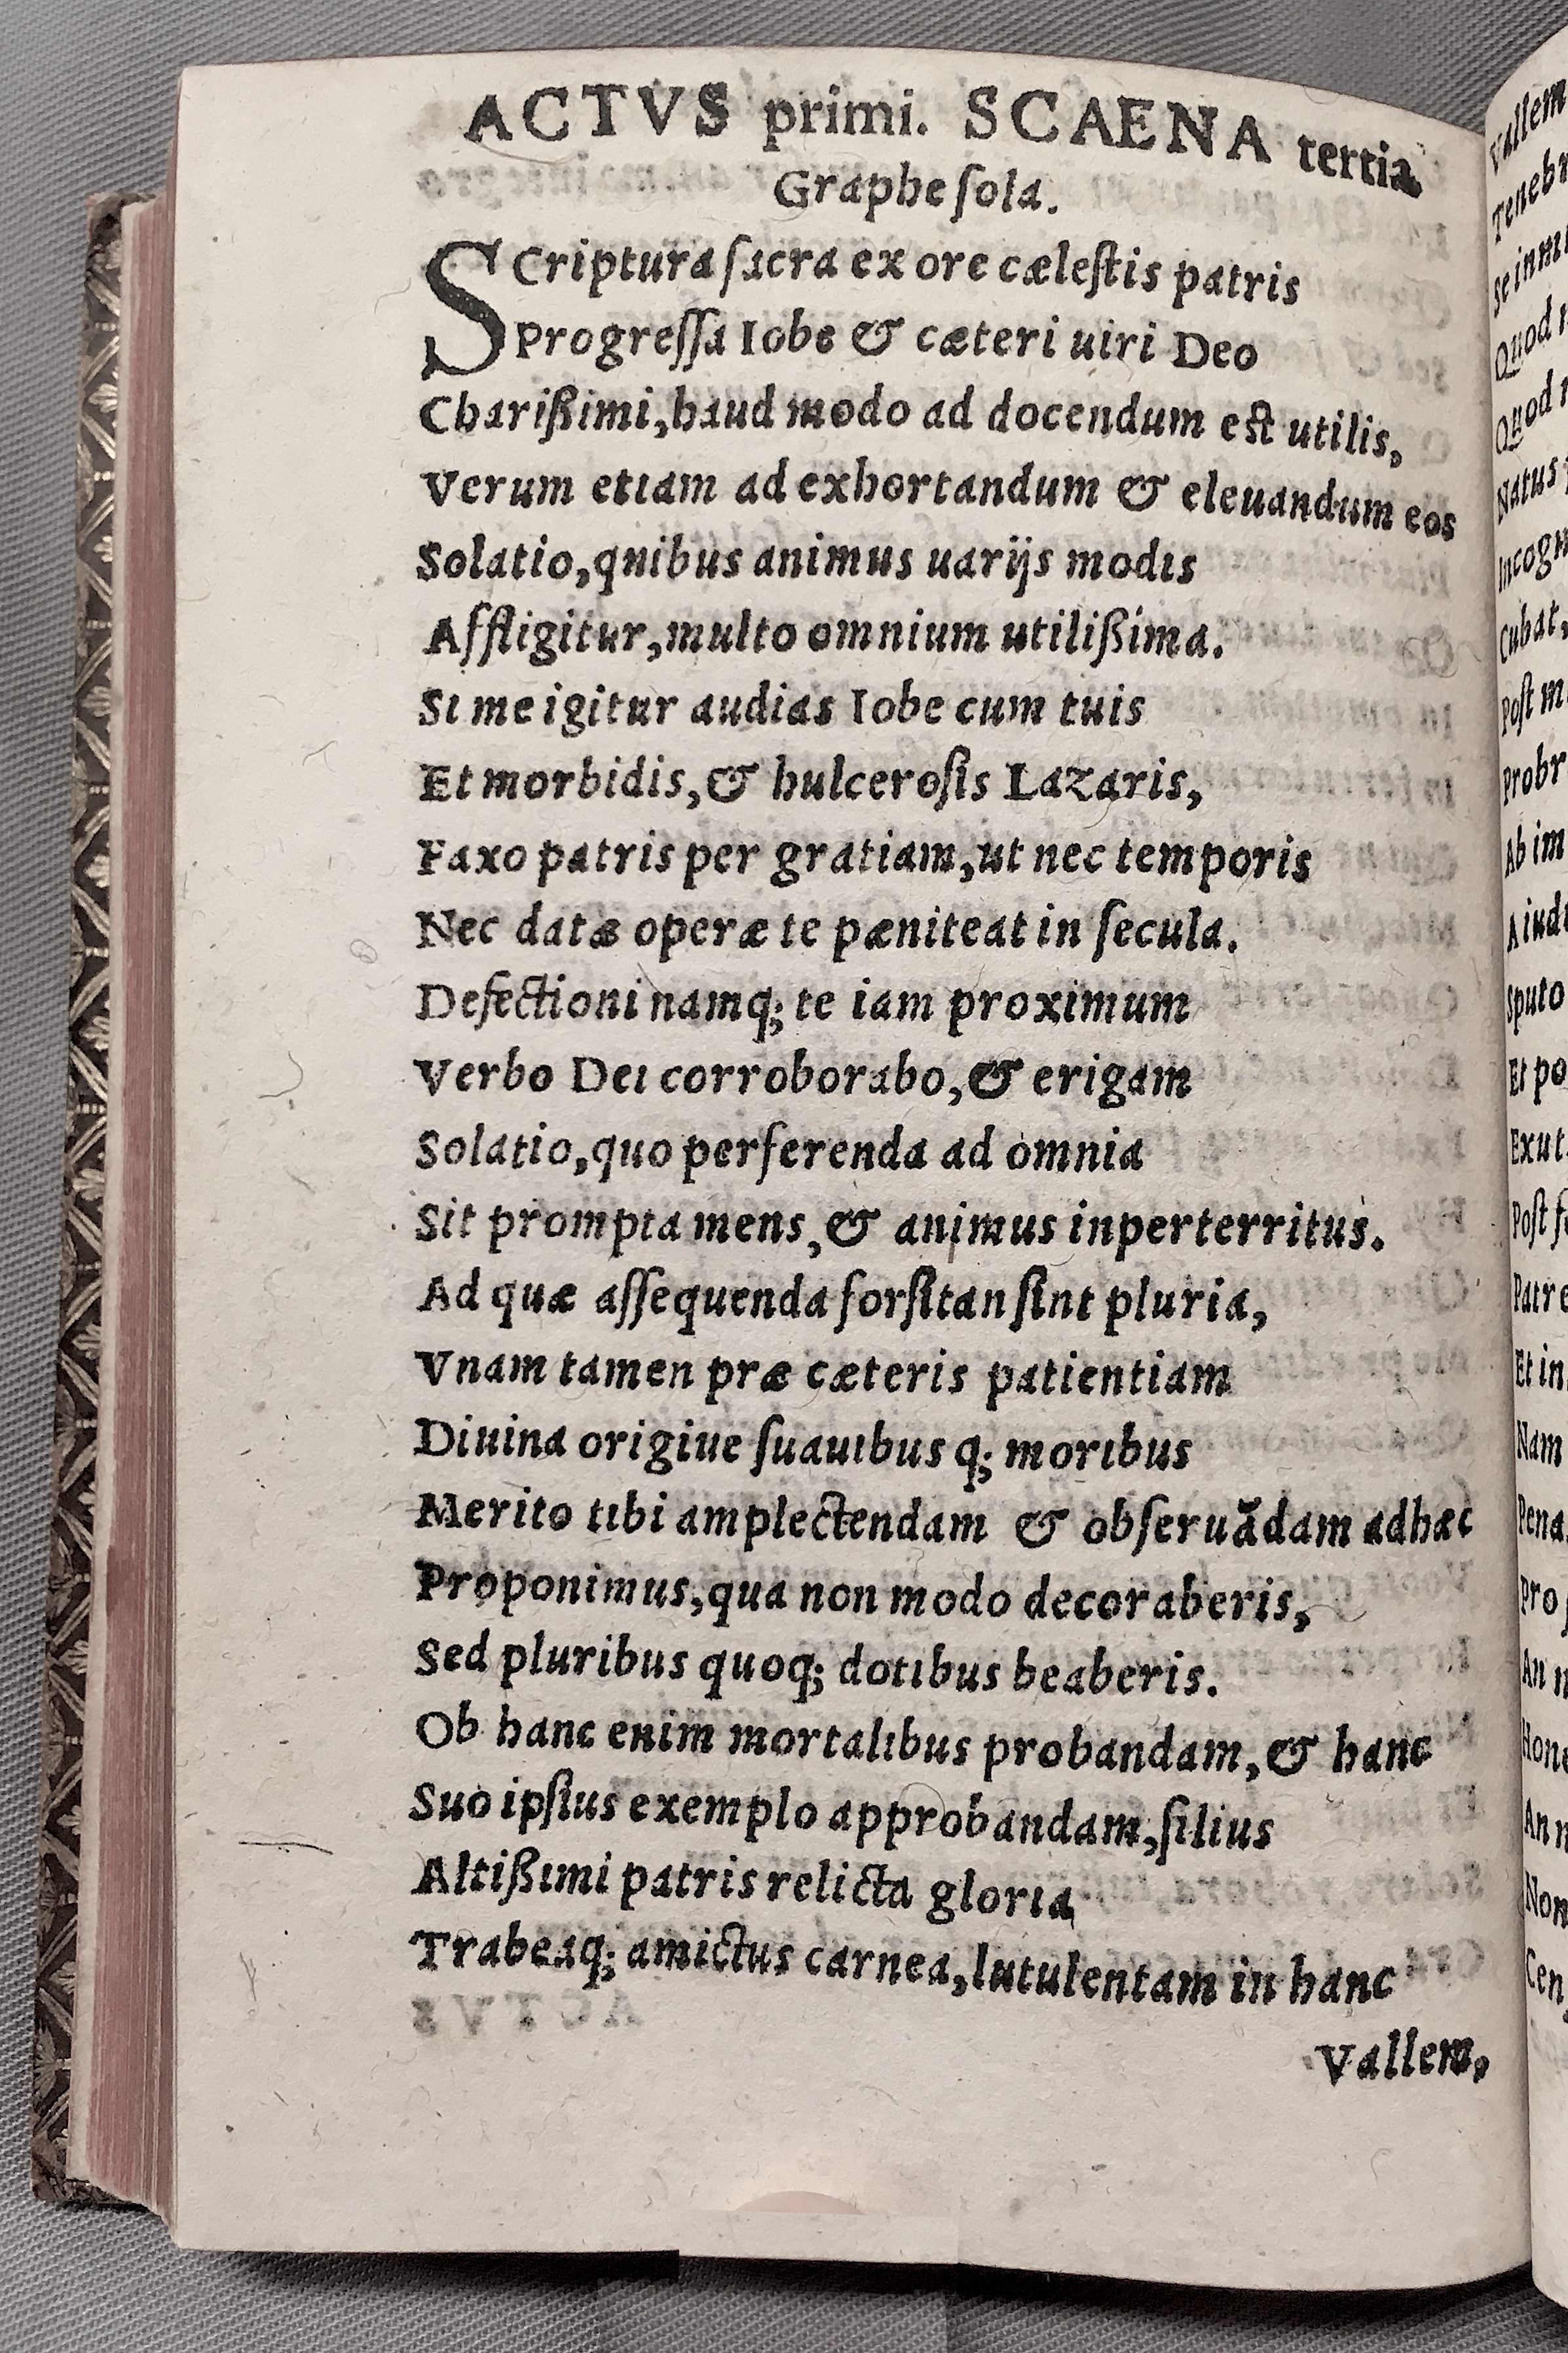 ACTVS primi. SCAENA tertia
Graphe ſola.
SCriptura ſacra ex ore cæleſtis patris
Progreſſa Iobe & cæteri uiri Deo
Charißimi, haud modo ad docendum eſt utilis,
Verum etiam ad exhortandum & eleuandum eos
Solatio, qnibus animus uarijs modis
Affligitur, multo omnium utilißima.
Si me igitur audias Iobe cum tuis
Et morbidis, & hulceroſis Lazaris,
Faxo patris per gratiam, ut nec temporis
Nec datæ operæ te pæniteat in ſecula.
Defectioni namq; te iam proximum
Verbo Dei corroborabo, & erigam
Solatio, quo perferenda ad omnia
Sit prompta mens, & animus inperterritus.
Ad quæ aſſequenda forſitan ſint pluria,
Vnam tamen præ cæteris patientiam
Diuina origiue ſuauibus q; moribus
Merito tibi amplectendam & obſeruādam adhæc
Proponimus, qua non modo decoraberis,
Sed pluribus quoq; dotibus beaberis.
Ob hanc enim mortalibus probandam, & hanc
Suo ipſius exemplo approbandam, filius
Altißimi patris relicta gloria
Trabeaq; amictus carnea, lutulentam in hanc
Vallem,
Vallem
Tenebr
Se inmi
Quod
Quod
Natus
Incogn
Cubat,
Poſt m
Probr
Ab im
A iud
Sputo
Et po
Exut
Poſt f
Patre
Et in
Nam
Pena
Pro
An n
Hone
An n
Non
Cen